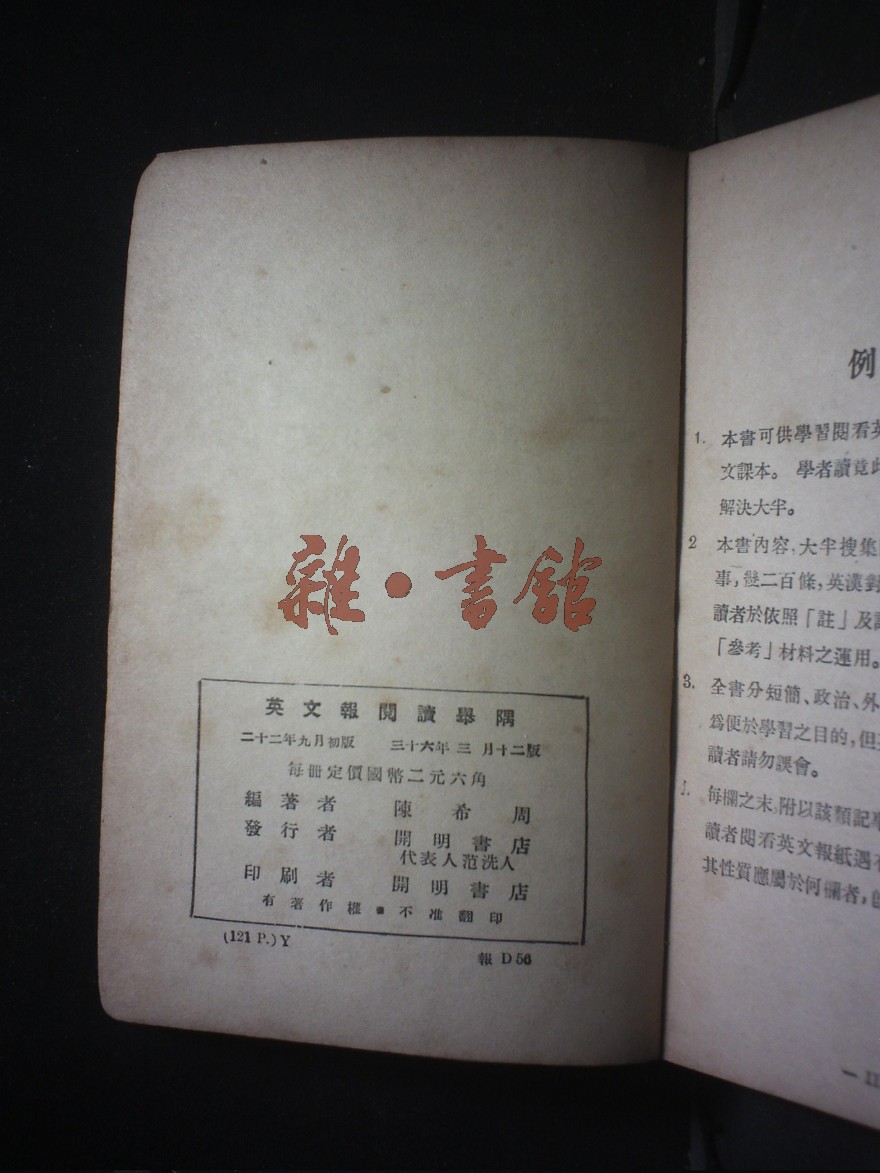 雜·書館
英文報閱讀舉隅
二十二年九月初版 三十六年三月十二版
每冊定價國幣二元六角
編著者 陳希周
發行者 開明書店
代表人范洗人
印刷者 開明書店
有著作權·不准翻印
(121 P.) Y
報 D 56
例
1. 本書可供學習閱看英
文課本。 學者讀竟此
解決大半。
2 本書內容,大半搜集
事,二百條,英漢對
讀者於依照「註」及
「參考」材料之運用。
3. 全書分短簡、政治、外
爲便於學習之目的,但
讀者請勿誤會。
每欄之末,附以該類記事
讀者閱看英文報紙遇有
其性質應屬於何欄者,
— II